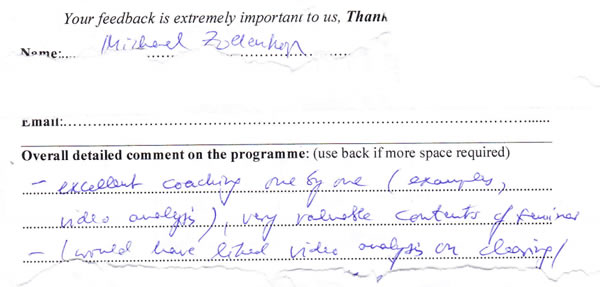 Your feedback is extremely important to us, Thank
Name:.... Michael
Email:
Overall detailed comment on the programme: (use back if more space required)
- excellent coaching one by one (examples,
video analysis), very valuable contents of seminar
- (would have liked video analysis on closing)